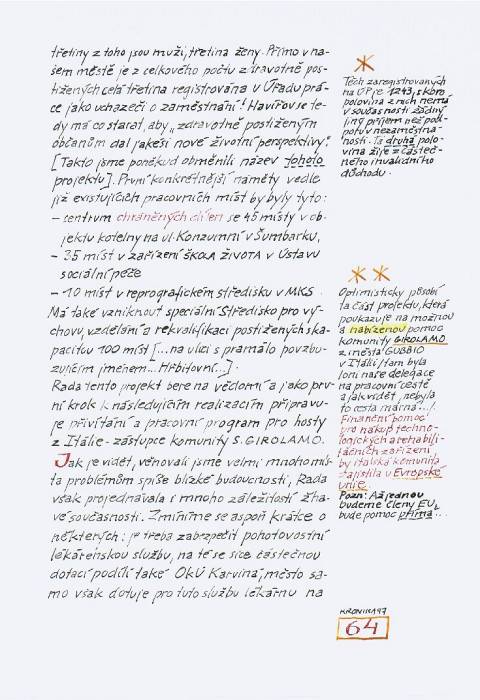 třetiny z toho jsou muži, třetina ženy. Přímo v na-
šem městě je z celkového počtu zdravotně pos-
tižených celá třetina registrována v Úřadu prá-
ce jako uchazeči o zaměstnání! Havířov se te-
dy má co starat, aby „zdravotně postiženým
občanům dal jakési nové životní perspektivy".
[Takto jsme poněkud obměnili název tohoto
projektu]. První konkrétnější náměty vedle
již existujících pracovních míst by byly tyto:
– centrum chráněných dílen se 45 místy v ob-
jektu kotelny na ul. Konzumní v Šumbarku,
– 35 míst v zařízení ŠKOLA ŽIVOTA v Ústavu
sociální péče
– 10 míst v reprografickém středisku v MKS.
Má také vzniknout speciální Středisko pro vý-
chovu, vzdělání a rekvalifikaci postižených s ka-
pacitou 100 míst [...na ulici s pramálo povzbu-
zujícím jménem... Hřbitovní...]
Rada tento projekt bere na vědomí a jako prv-
ní krok k následujícím realizacím připravu-
je přivítání a pracovní program pro hosty
z Itálie – zástupce komunity S. GIROLAMO.
Jak je vidět, věnovali jsme velmi mnoho mís-
ta problémům spíše blízké budoucnosti, Rada
však projednávala i mnoho záležitostí žha-
vé současnosti. Zmiňme se aspoň krátce o
některých: je třeba zabezpečit pohotovostní
lékárenskou službu, na té se sice částečnou
dotací podílí také OkÚ Karviná, město sa-
mo však dotuje pro tuto službu lékárnu na
*
Těch zaregistrovaných
na ÚP je 1243, skoro
polovina z nich nemá
v současnosti žádný
jiný příjem než pod-
poru v nezaměstna-
nosti. Ta druhá polo-
vina žije z částeč-
ného invalidního
důchodu.
**
Optimisticky působí
ta část projektu, která
poukazuje na možnou
a nabízenou pomoc
komunity GIROLAMO
z města GUBBIO
v Itálii /tam byla
loni naše delegace
na pracovní cestě
a jak vidět, nebyla
to cesta marná.../.
Finanční pomoc
pro nákup techno-
logických a rehabili-
tačních zařízení
by italská komunita
zajistila u Evropské
unie.
Pozn: Až jednou
budeme členy EU,
bude pomoc přímá...
KRONIKA 97
64